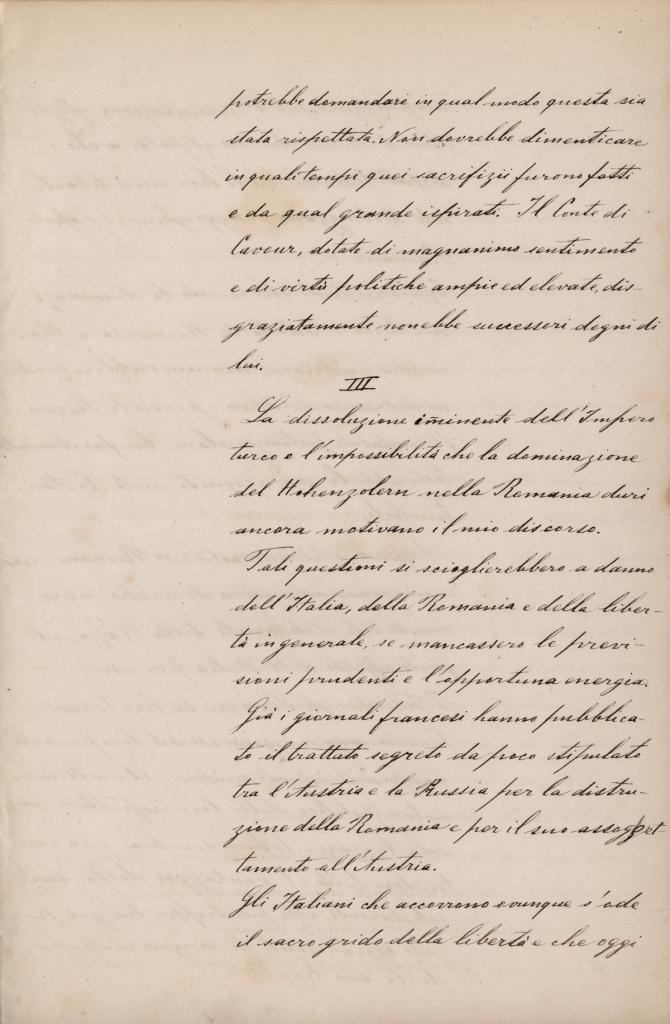 potrebbe domandare in qual modo questa sia
stata rispettata. Non dovrebbe dimenticare
in quali tempi quei sacrifizii furono fatti
e da qual grande ispirati. Il Conte di
Cavour, dotato di magnanimo sentimento
e di virtù politiche ampie ed elevate, dis-
graziatamente non ebbe successori degni di
lui.
III
La dissoluzione im̄inente dell'Impero
turco e l'impossibilità che la dominazione
del Hohenzolern nella Romania duri
ancora motivano il mio discorso.
Tali questioni si scioglierebbero a danno
dell'Italia, della Romania e della liber-
tà in generale, se mancassero le previ-
sioni prudenti e l'opportuna energia.
Già i giornali francesi hanno pubblica-
to il trattato segreto da poco stipulato
tra l'Austria e la Russia per la distru-
zione della Romania e per il suo assogget
tamento all'Austria.
Gli Italiani che accorrono ovunque s'ode
il sacro grido della libertà e che oggi